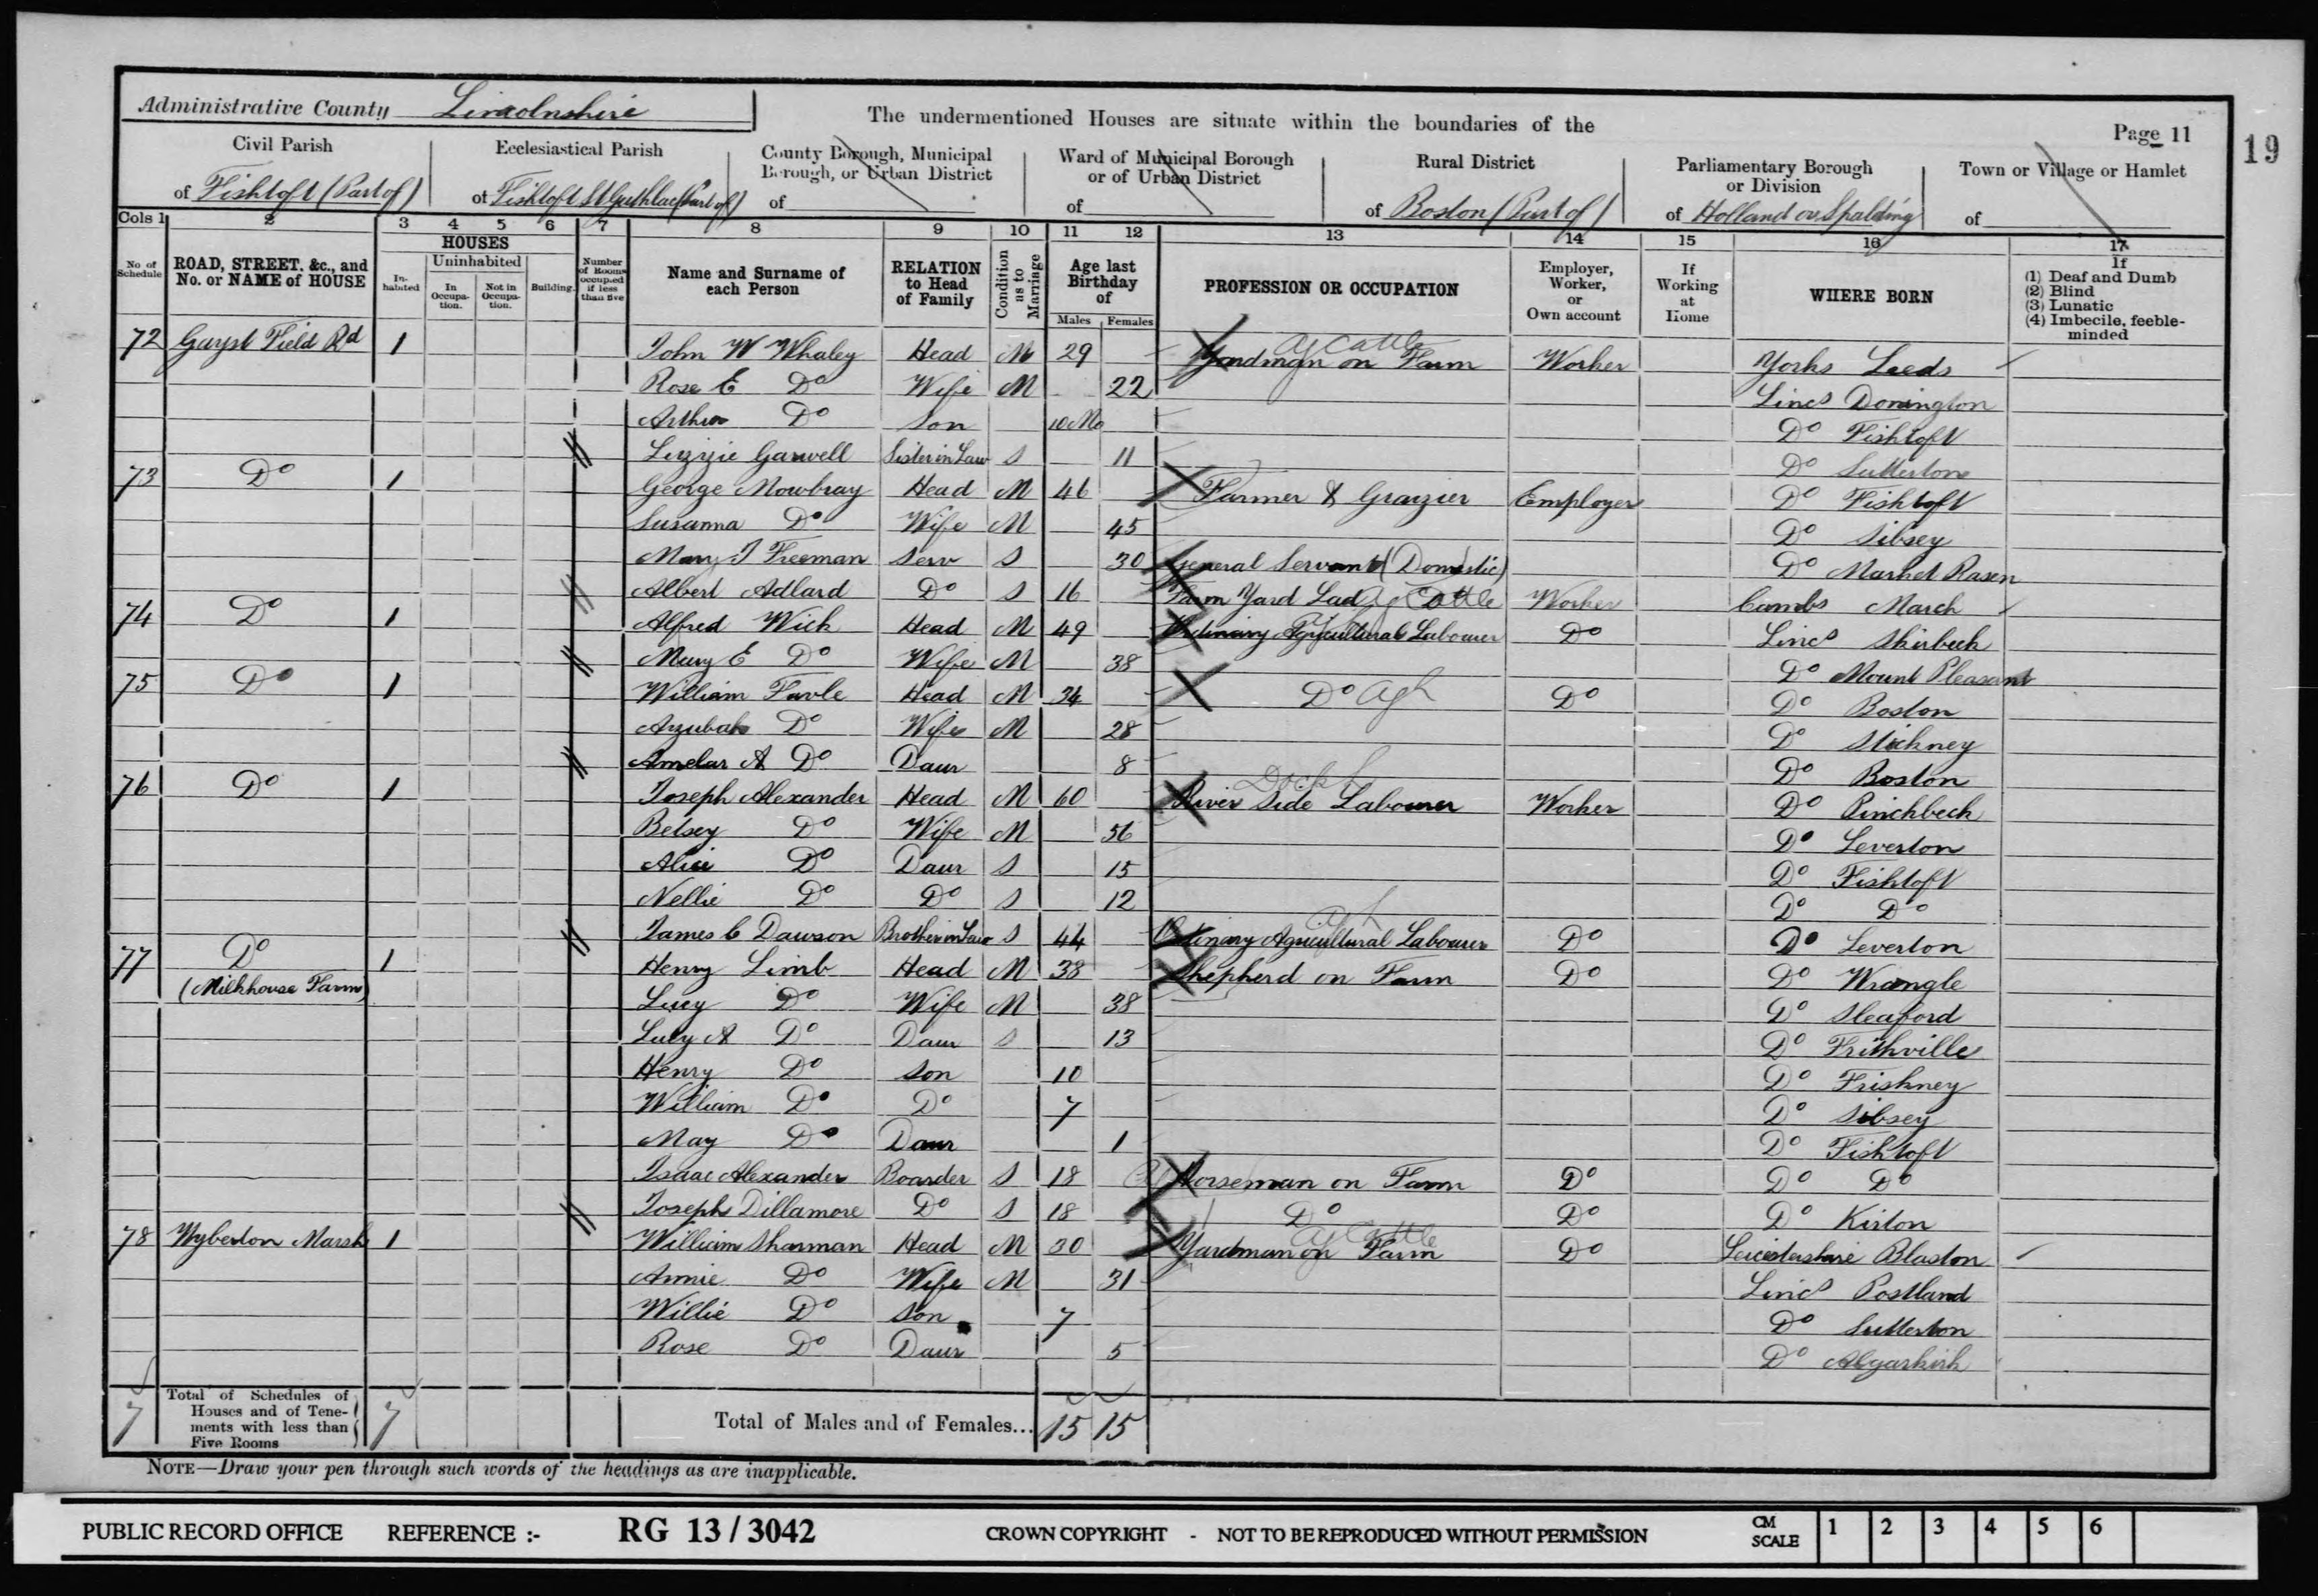 Administrative County Lincolnshire
The undermentioned Houses are situate within the boundaries of the
Page 11
19
Civil Parish of Fishtoft (Part of)
Ecclesiastical Parish of Fishtoft St Guthlac (Part of)
County Borough, Municipal Borough, or Urban District of
Ward of Municipal Borough or of Urban District of
Rural District of Boston (Part of)
Parliamentary Borough or Division of Holland or Spalding
Town or Village or Hamlet of
Cols 1 2 3 4 5 6 7 8 9 10 11 12 13 14 15 16 17
No. of Schedule
ROAD, STREET, &c., and No. or NAME of HOUSE
HOUSES
In-habited
Uninhabited
In Occupa-tion.
Not in Occupa-tion.
Building.
Number of Rooms occupied if less than five
Name and Surname of each Person
RELATION to Head of Family
Condition as to Marriage
Age last Birthday of
Males Females
PROFESSION OR OCCUPATION
Employer, Worker, or Own account
If Working at Home
WHERE BORN
If
(1) Deaf and Dumb
(2) Blind
(3) Lunatic
(4) Imbecile, feeble-minded
72 Field Rd 1 John W Whaley Head M 29 Yardman on Farm Ag Cattle Worker Yorks Leeds
Rose E Do Wife M 22 Lincs Donington
Arthur Do Son 10 Mo Do Fishtoft
Lizzie Garwell Sister in Law S 11 Do Sutterton
73 Do 1 George Mowbray Head M 46 Farmer & Grazier Employer Do Fishtoft
Susanna Do Wife M 45 Do Sibsey
Mary J Freeman Serv S 30 General Servant (Domestic) Do Market Rasen
Albert Adlard Do S 16 Farm Yard Lad Ag Cattle Worker Cambs March
74 Do 1 Alfred Wick Head M 49 Ordinary Agricultural Labourer Do Lincs Skirbeck
Mary E Do Wife M 38 Do Mount Pleasant
75 Do 1 William Head M 34 Do Ag Do Do Boston
Azubah Do Wife M 28 Do Stickney
Amelar A Do Daur 8 Do Boston
76 Do 1 Joseph Alexander Head M 60 River Side Labourer Dock L Worker Do Pinchbeck
Betsey Do Wife M 56 Do Leverton
Alice Do Daur S 15 Do Fishtoft
Nellie Do Do S 12 Do Do
James C Dawson Brother in Law S 44 Ordinary Agricultural Labourer Do Do Leverton
77 Do 1 Henry Limb Head M 38 Shepherd on Farm Do Do Wrangle
(Milkhouse Farm) Lucy Do Wife M 38 Do Sleaford
Lucy A Do Daur S 13 Do Frithville
Henry Do Son 10 Do Friskney
William Do Do 7 Do Sibsey
May Do Daur 1 Do Fishtoft
Isaac Alexander Boarder S 18 Horseman on Farm Do Do Do
Joseph Dillamore Do S 18 Do Do Do Kirton
78 Wyberton Marsh 1 William Sharman Head M 30 Yardman on Farm Ag Cattle Do Leicestershire Blaston
Annie Do Wife M 31 Lincs Postland
Willie Do Son 7 Do Sutterton
Rose Do Daur 5 Do Algarkirk
7 Total of Schedules of Houses and of Tene-ments with less than Five Rooms 7 Total of Males and of Females... 15 15
NOTE—Draw your pen through such words of the headings as are inapplicable.
PUBLIC RECORD OFFICE REFERENCE :- RG 13/3042 CROWN COPYRIGHT - NOT TO BE REPRODUCED WITHOUT PERMISSION CM SCALE 1 2 3 4 5 6